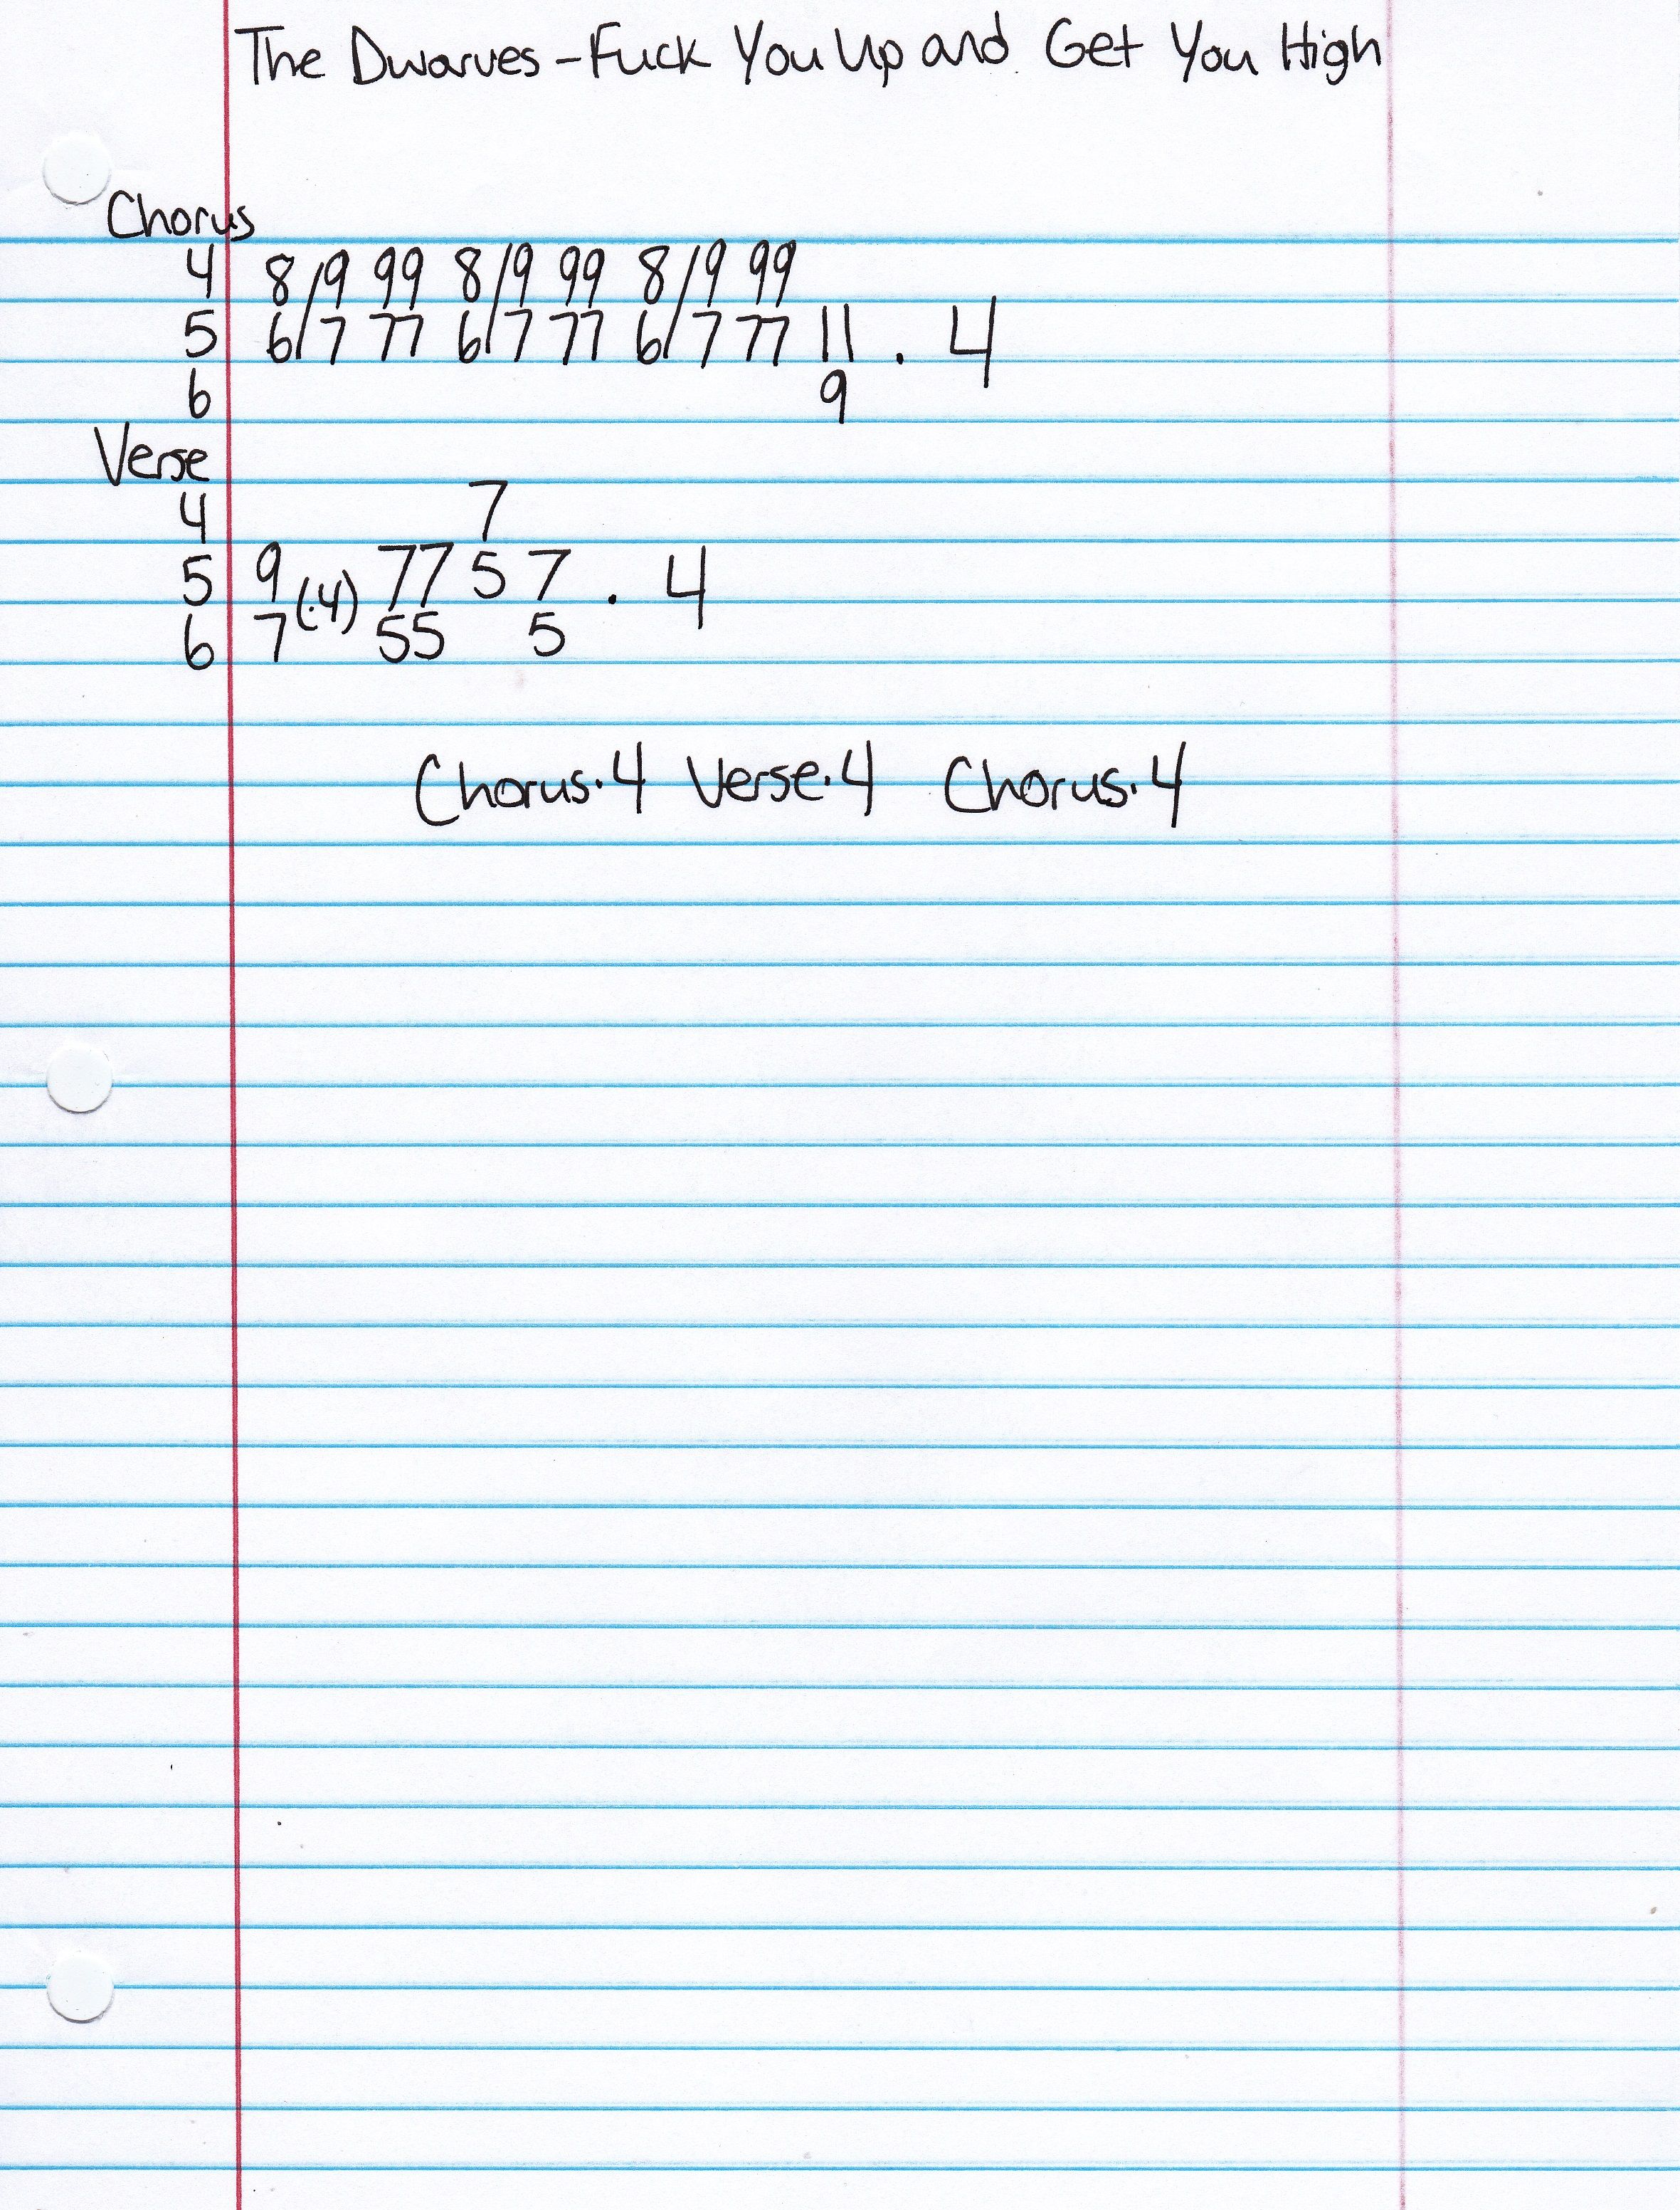 The Dwarves - Fuck You Up and Get You High
Chorus
4 8/9 99 8/9 99 8/9 99
5 6/7 77 6/7 77 6/7 77 11 . 4
6 9
Verse
4 7
5 9 (·4) 77 5 7 . 4
6 7 55 5
Chorus·4 Verse·4 Chorus·4